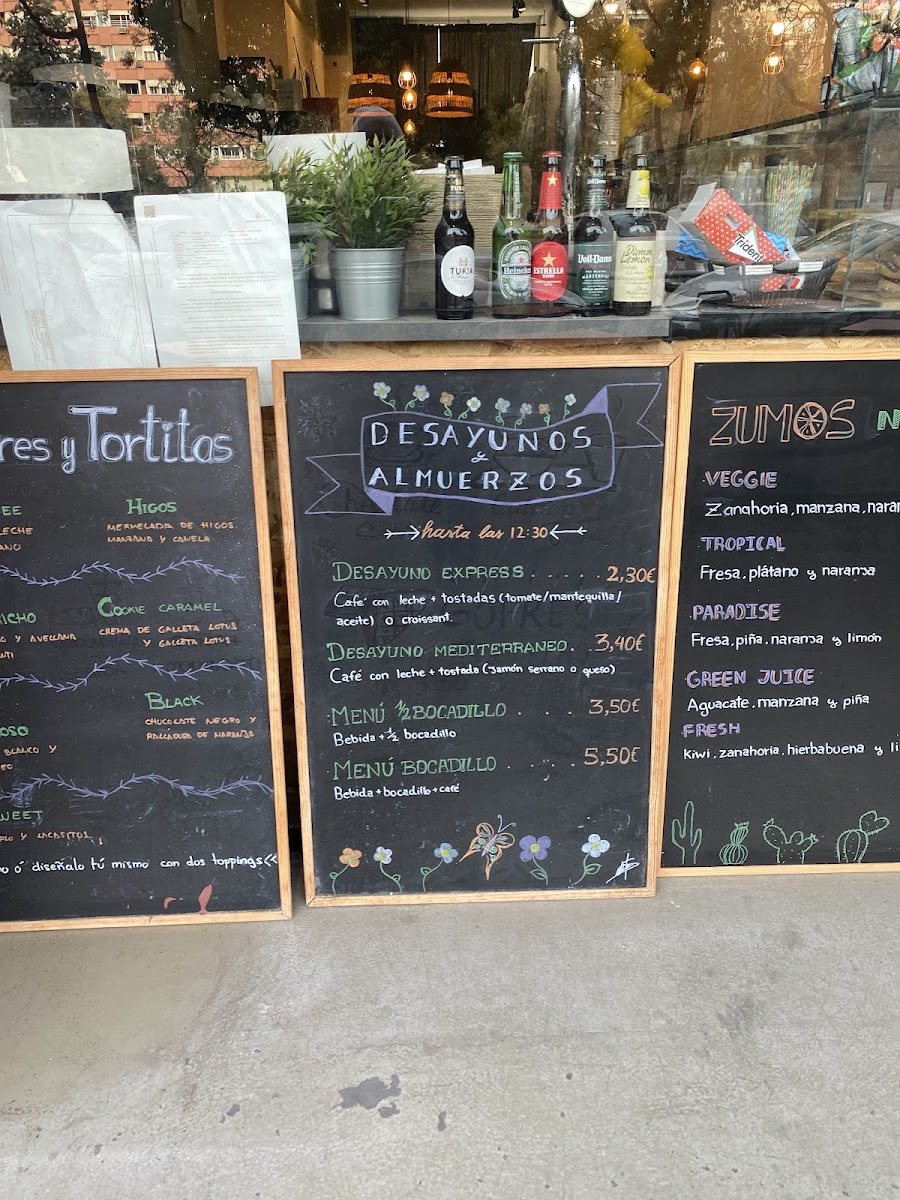 TURIA
Heineken
ESTRELLA
DAMM
Voll-Damm
Damm
Lemon
Trident
res y Tortitas
EE
LECHE
ANO
HIGOS
MERMELADA DE HIGOS,
MANZANA Y CANELA
ICHO
O Y AVELLANA
NTI
COOKIE CARAMEL
CREMA DE GALLETA LOTUS
Y GALLETA LOTUS
OSO
BLANCO Y
EO
BLACK
CHOCOLATE NEGRO Y
RALLADURA DE NARANJA
WEET
PLO Y LACASITOS
o ó diseñalo tú mismo con dos toppings
DESAYUNOS
y
ALMUERZOS
hasta las 12:30
DESAYUNO EXPRESS ..... 2,30€
Café con leche + tostadas (tomate/mantequilla/
aceite) o croissant.
DESAYUNO MEDITERRANEO. . 3,40€
Café con leche + tostada (Jamón serrano o queso)
MENÚ ½ BOCADILLO . . . . 3,50€
Bebida + ½ bocadillo
MENÚ BOCADILLO . . . . 5,50€
Bebida + bocadillo + café
ZUMOS N
VEGGIE
Zanahoria, manzana, naran
TROPICAL
Fresa, plátano y naranja
PARADISE
Fresa, piña, naranja y limón
GREEN JUICE
Aguacate, manzana y piña
FRESH
Kiwi, zanahoria, hierbabuena y li